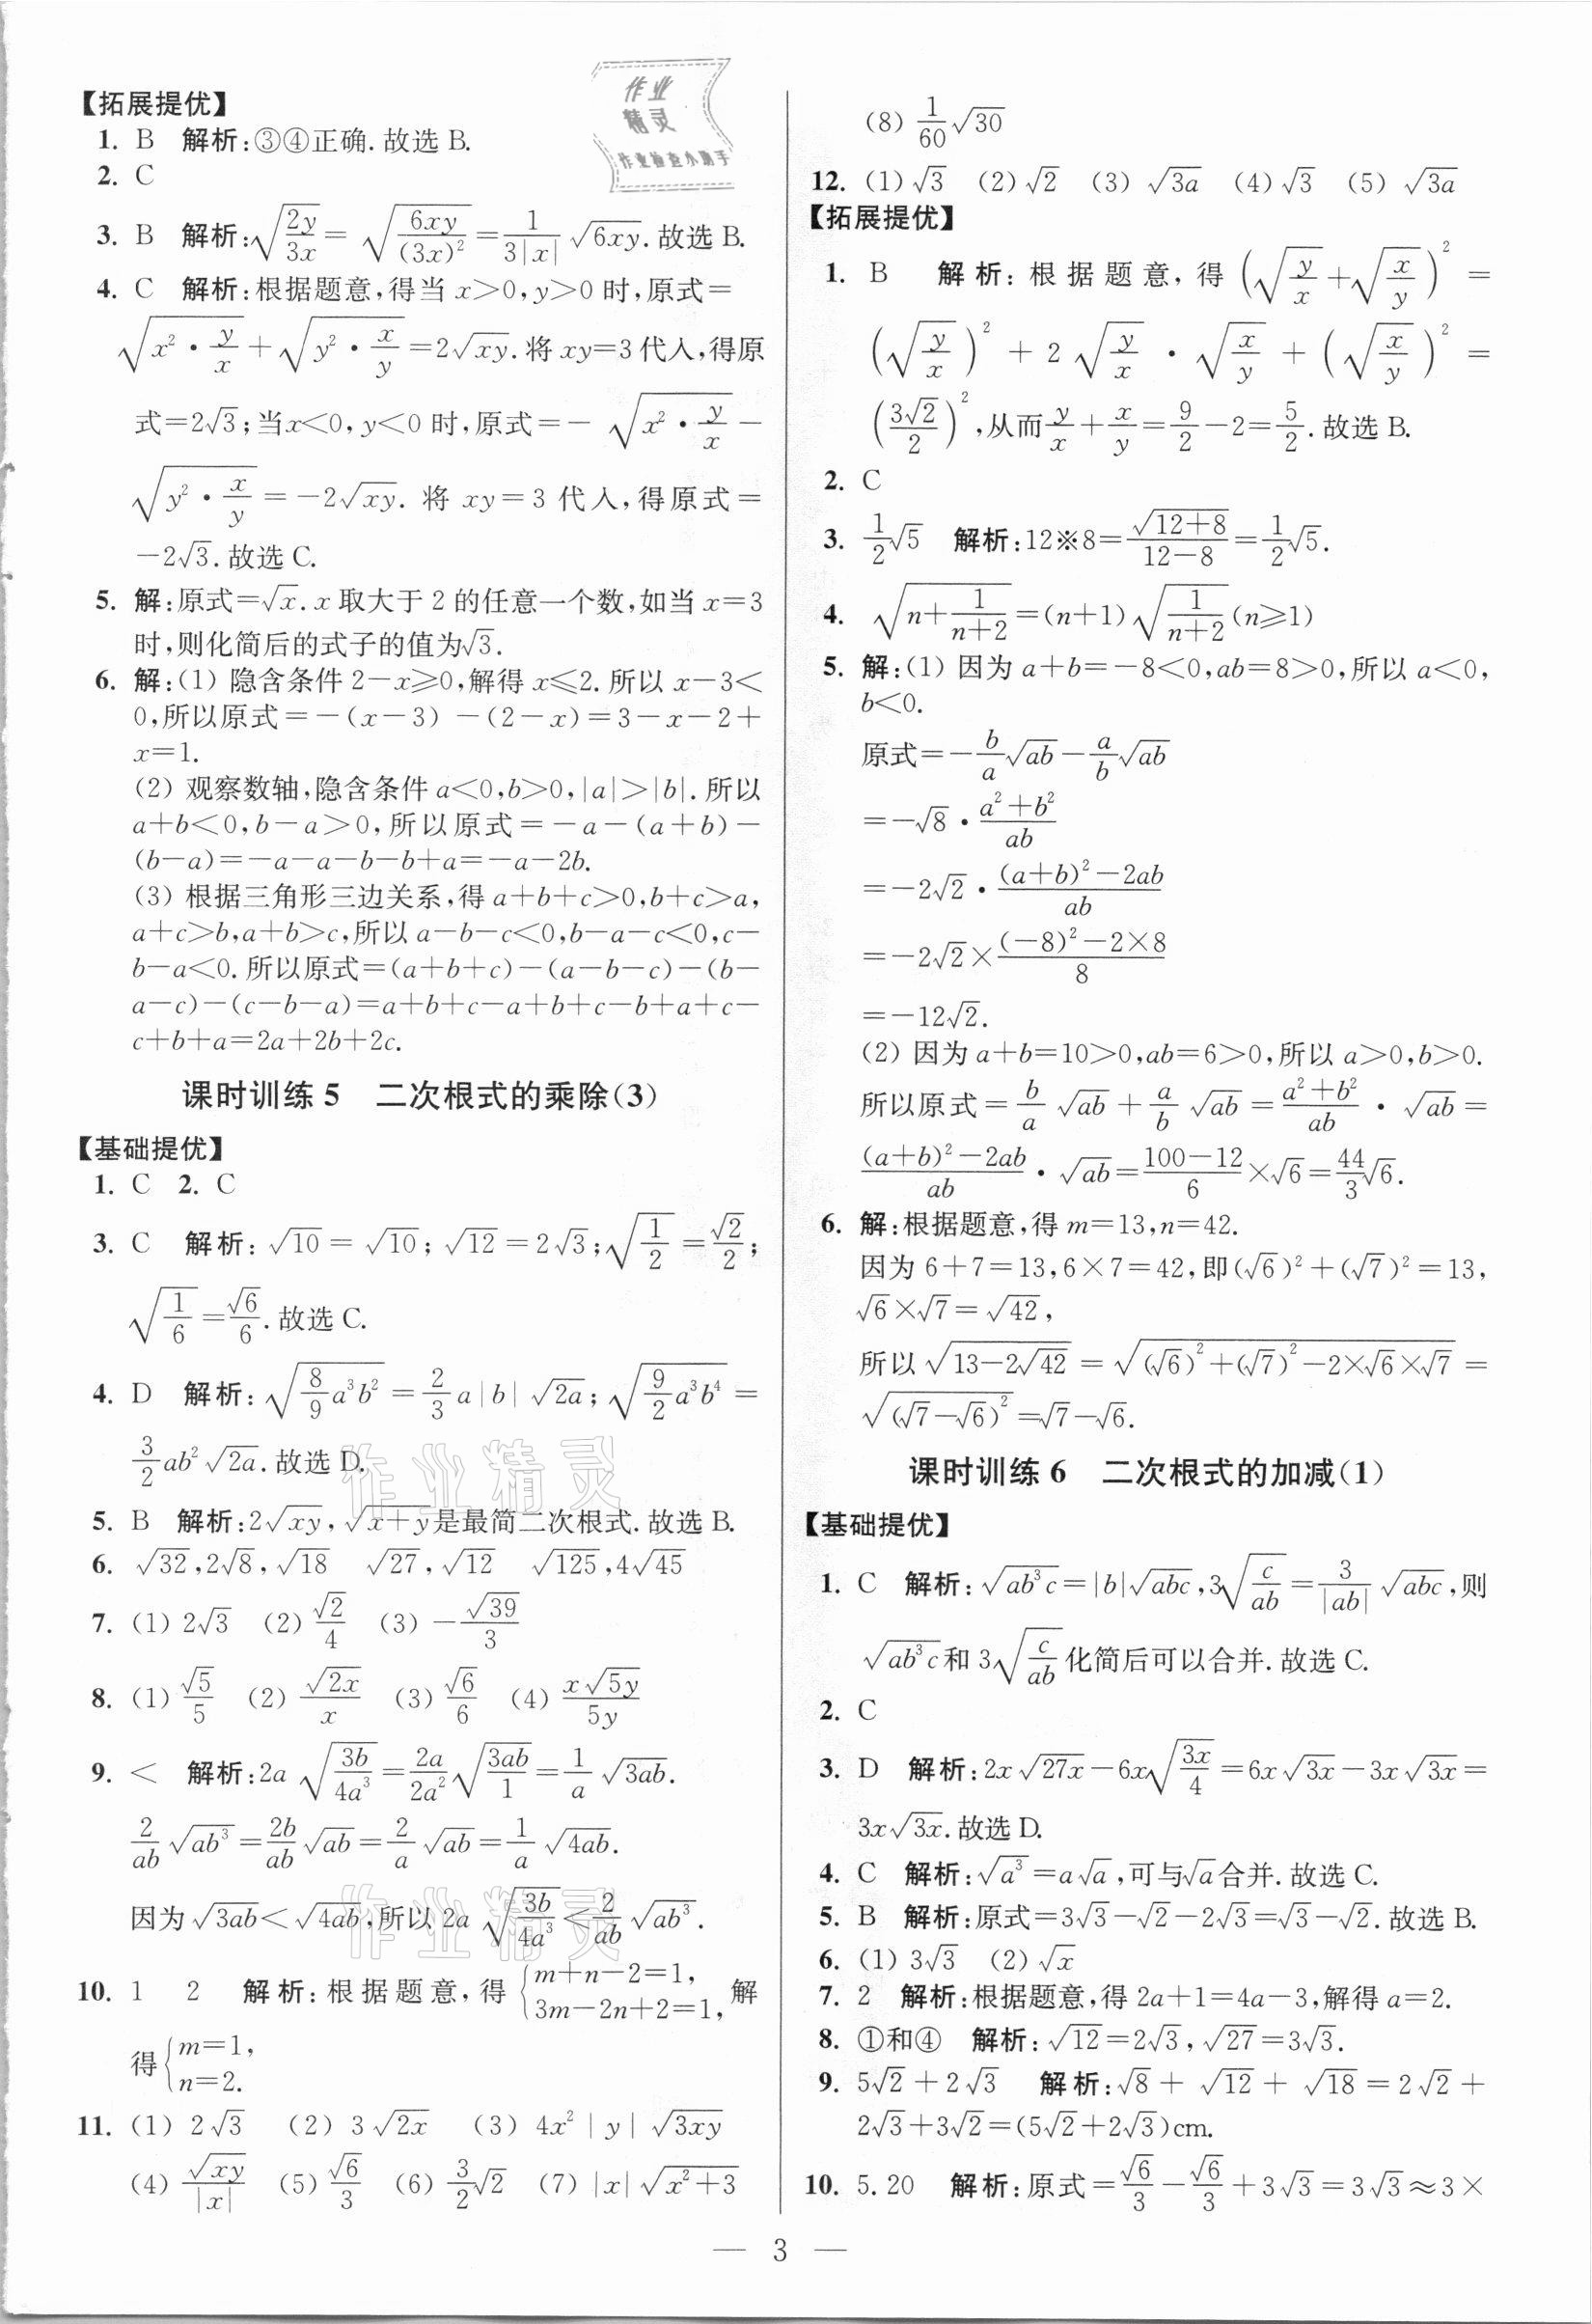 【拓展提优】
1. B 解析:③④正确.故选B.
2. C
3. B 解析:√(2y/3x)=√(6xy/(3x)²)=1/(3|x|)√(6xy).故选B.
4. C 解析:根据题意,得当x>0,y>0时,原式=
√(x²·y/x)+√(y²·x/y)=2√(xy).将xy=3代入,得原
式=2√3;当x<0,y<0时,原式=-√(x²·y/x)-
√(y²·x/y)=-2√(xy).将xy=3代入,得原式=
-2√3.故选C.
5. 解:原式=√x.x取大于2的任意一个数,如当x=3
时,则化简后的式子的值为√3.
6. 解:(1) 隐含条件2-x≥0,解得x≤2.所以x-3<
0,所以原式=-(x-3)-(2-x)=3-x-2+
x=1.
(2) 观察数轴,隐含条件a<0,b>0,|a|>|b|.所以
a+b<0,b-a>0,所以原式=-a-(a+b)-
(b-a)=-a-a-b-b+a=-a-2b.
(3) 根据三角形三边关系,得a+b+c>0,b+c>a,
a+c>b,a+b>c,所以a-b-c<0,b-a-c<0,c-
b-a<0.所以原式=(a+b+c)-(a-b-c)-(b-
a-c)-(c-b-a)=a+b+c-a+b+c-b+a+c-
c+b+a=2a+2b+2c.
课时训练5 二次根式的乘除(3)
【基础提优】
1. C 2. C
3. C 解析:√10=√10;√12=2√3;√(1/2)=√2/2;
√(1/6)=√6/6.故选C.
4. D 解析:√(8/9a³b²)=2/3a|b|√(2a);√(9/2a³b⁴)=
3/2ab²√(2a).故选D.
5. B 解析:2√(xy),√(x+y)是最简二次根式.故选B.
6. √32,2√8,√18 √27,√12 √125,4√45
7. (1) 2√3 (2) √2/4 (3) -√39/3
8. (1) √5/5 (2) √(2x)/x (3) √6/6 (4) x√(5y)/5y
9. < 解析:2a√(3b/4a³)=2a/2a²√(3ab/1)=1/a√(3ab).
2/ab√(ab³)=2b/ab√(ab)=2/a√(ab)=1/a√(4ab).
因为√(3ab)<√(4ab),所以2a√(3b/4a³)<2/ab√(ab³).
10. 1 2 解析:根据题意,得{m+n-2=1, 3m-2n+2=1,解
得{m=1, n=2.
11. (1) 2√3 (2) 3√(2x) (3) 4x²|y|√(3xy)
(4) √(xy)/|x| (5) √6/3 (6) 3/2√2 (7) |x|√(x²+3)
(8) 1/60√30
12. (1) √3 (2) √2 (3) √(3a) (4) √3 (5) √(3a)
【拓展提优】
1. B 解析:根据题意,得(√(y/x)+√(x/y))²=
(√(y/x))²+2√(y/x)·√(x/y)+(√(x/y))²=
(3√2/2)²,从而y/x+x/y=9/2-2=5/2.故选B.
2. C
3. 1/2√5 解析:12※8=√(12+8)/(12-8)=1/2√5.
4. √(n+1/(n+2))=(n+1)√(1/(n+2))(n≥1)
5. 解:(1) 因为a+b=-8<0,ab=8>0,所以a<0,
b<0.
原式=-b/a√(ab)-a/b√(ab)
=-√8·(a²+b²)/ab
=-2√2·((a+b)²-2ab)/ab
=-2√2×((-8)²-2×8)/8
=-12√2.
(2) 因为a+b=10>0,ab=6>0,所以a>0,b>0.
所以原式=b/a√(ab)+a/b√(ab)=(a²+b²)/ab·√(ab)=
((a+b)²-2ab)/ab·√(ab)=(100-12)/6×√6=44/3√6.
6. 解:根据题意,得m=13,n=42.
因为6+7=13,6×7=42,即(√6)²+(√7)²=13,
√6×√7=√42,
所以√(13-2√42)=√((√6)²+(√7)²-2×√6×√7)=
√((√7-√6)²)=√7-√6.
课时训练6 二次根式的加减(1)
【基础提优】
1. C 解析:√(ab³c)=|b|√(abc),3√(c/ab)=3/|ab|√(abc),则
√(ab³c)和3√(c/ab)化简后可以合并.故选C.
2. C
3. D 解析:2x√(27x)-6x√(3x/4)=6x√(3x)-3x√(3x)=
3x√(3x).故选D.
4. C 解析:√(a³)=a√a,可与√a合并.故选C.
5. B 解析:原式=3√3-√2-2√3=√3-√2.故选B.
6. (1) 3√3 (2) √x
7. 2 解析:根据题意,得2a+1=4a-3,解得a=2.
8. ①和④ 解析:√12=2√3,√27=3√3.
9. 5√2+2√3 解析:√8+√12+√18=2√2+
2√3+3√2=(5√2+2√3)cm.
10. 5.20 解析:原式=√6/3-√6/3+3√3=3√3≈3×
— 3 —
作业
精灵
作业检查小助手
作业精灵
作业精灵